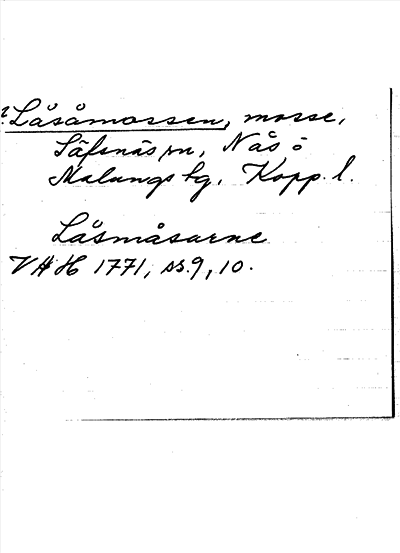 ? Låsåmossen, mosse,
Säfsnäs sn, Nås o
Malungs hg, Kopp. l.
Låsmåsarne
VHH 1771, ss. 9, 10.